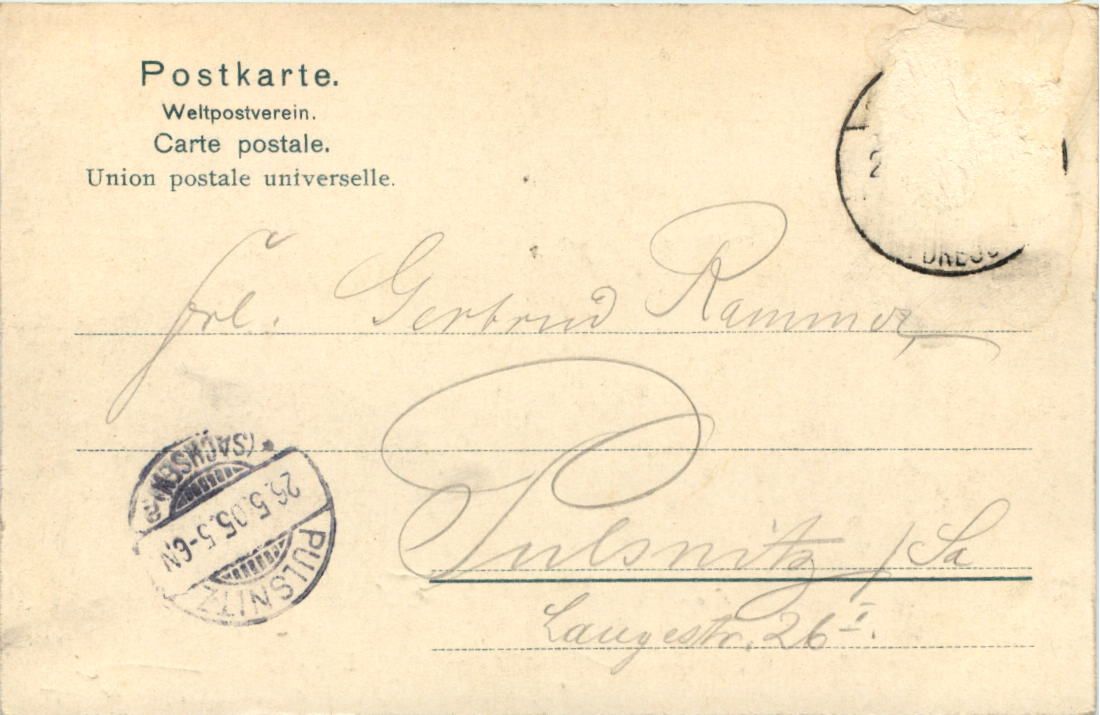 Postkarte.
Weltpostverein.
Carte postale.
Union postale universelle.
2
DRESD
Frl. Gertrud Rammer,
Pulsnitz /Sa
Langestr. 26 I.
PULSNITZ
26.5.05.5-6N
*(SACHSEN)